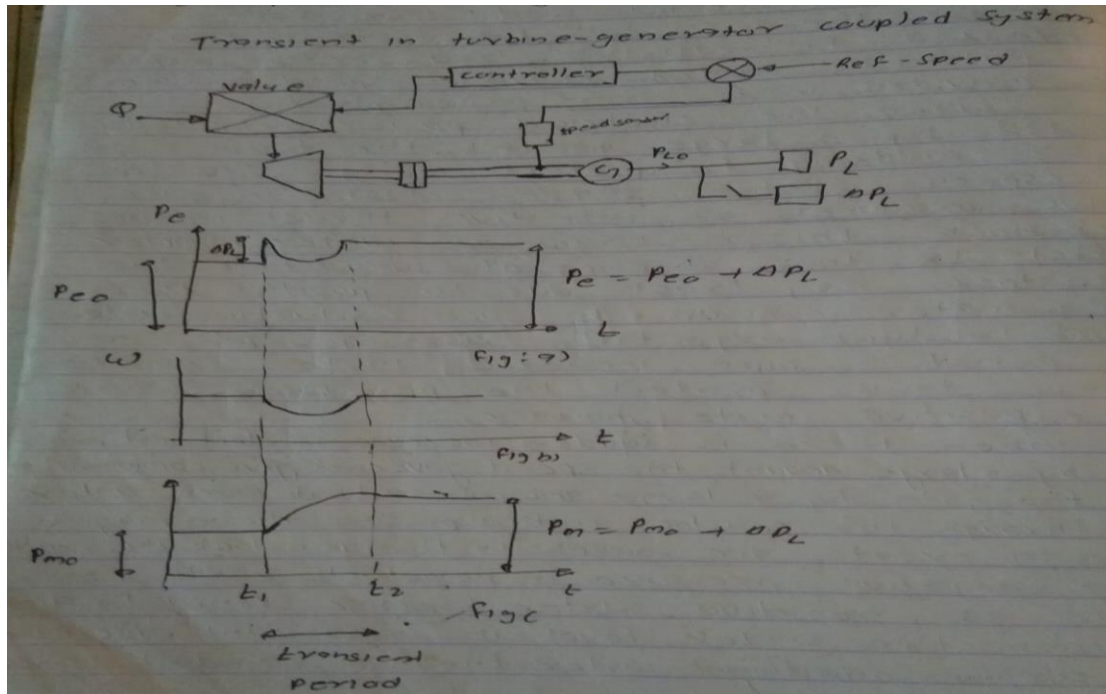 Transient in turbine-generator coupled system
value
controller
Ref-speed
Q
speed sensor
G
PLo
PL
ΔPL
Pe
ΔPL
Peo
Pe = Peo + ΔPL
t
fig: a)
ω
t
fig b)
Pmo
Pm = Pmo + ΔPL
t1
t2
t
fig c
transient
period